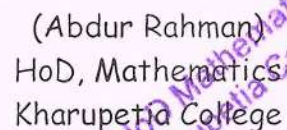 (Abdur Rahman)
HoD, Mathematics
Kharupetia College